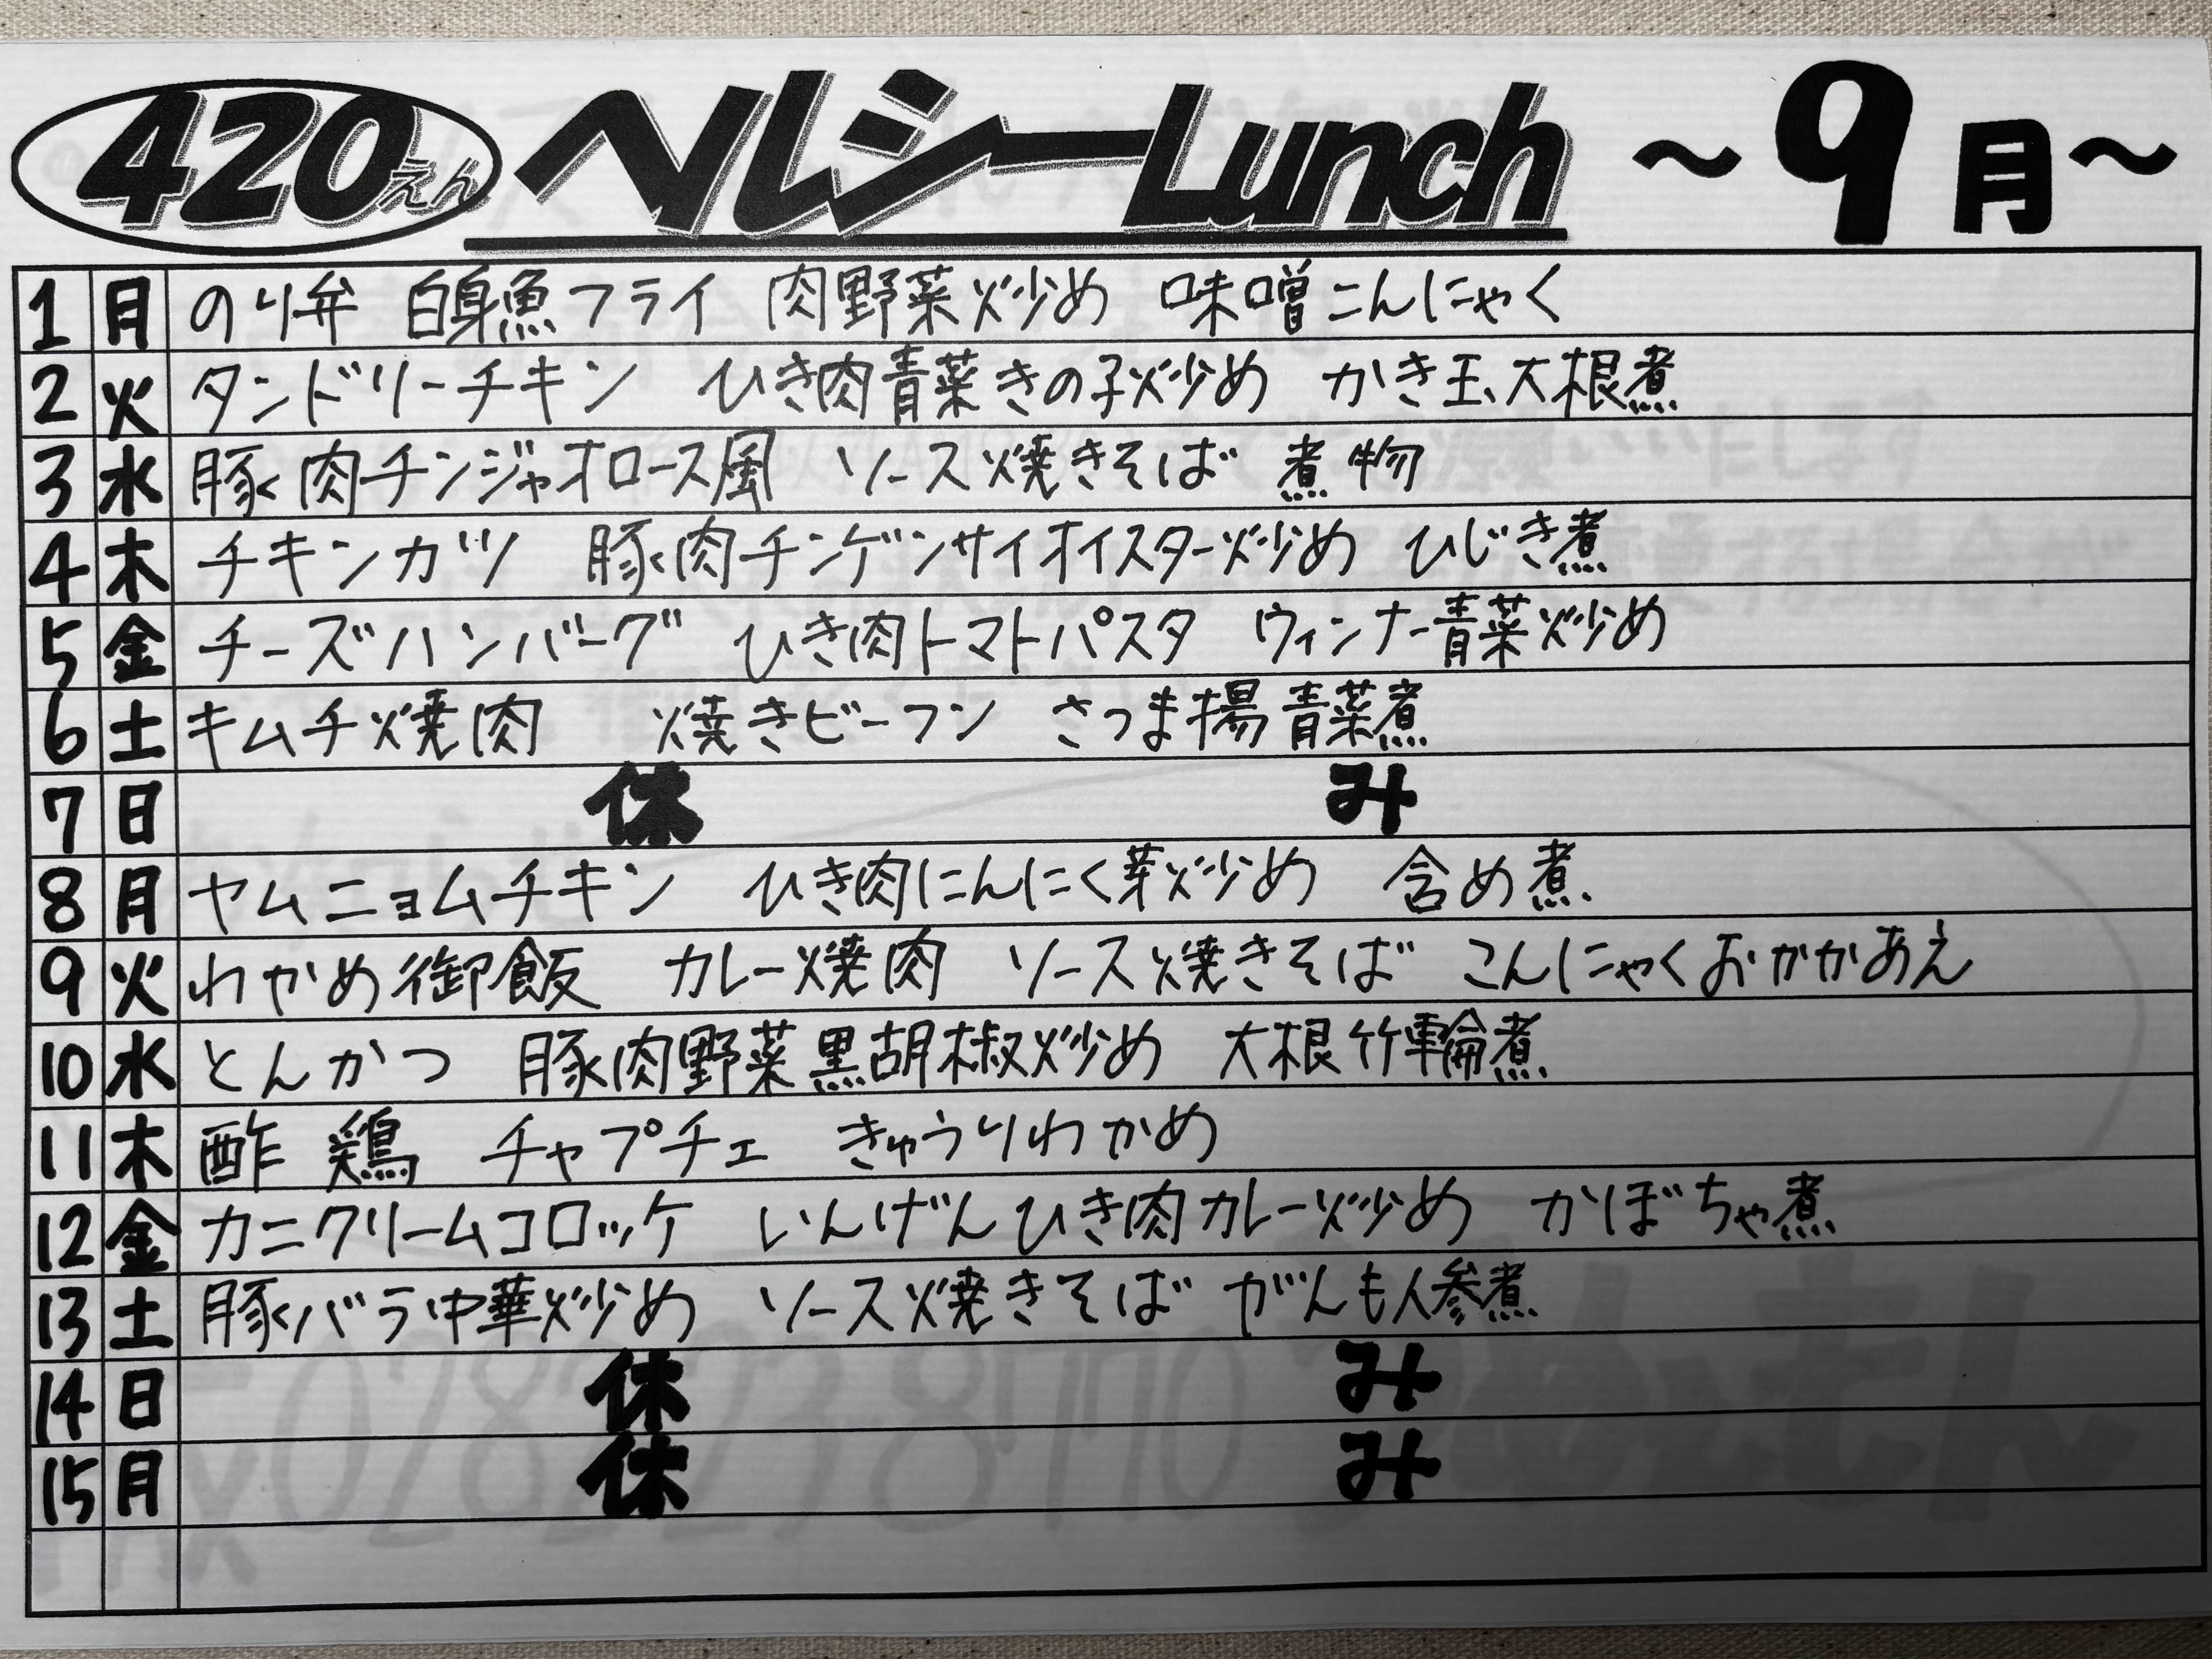 420えん ヘルシーLunch ～9月～
1 月 のり弁 白身魚フライ 肉野菜炒め 味噌こんにゃく
2 火 タンドリーチキン ひき肉青菜きの子炒め かき玉大根煮
3 水 豚肉チンジャオロース風 ソース焼きそば 煮物
4 木 チキンカツ 豚肉チンゲンサイオイスター炒め ひじき煮
5 金 チーズハンバーグ ひき肉トマトパスタ ウィンナー青菜炒め
6 土 キムチ焼肉 焼きビーフン さつま揚青菜煮
7 日 休み
8 月 ヤムニョムチキン ひき肉にんにく芽炒め 含め煮
9 火 わかめ御飯 カレー焼肉 ソース焼きそば こんにゃくおかかあえ
10 水 とんかつ 豚肉野菜黒胡椒炒め 大根竹輪煮
11 木 酢鶏 チャプチェ きゅうりわかめ
12 金 カニクリームコロッケ いんげんひき肉カレー炒め かぼちゃ煮
13 土 豚バラ中華炒め ソース焼きそば がんも人参煮
14 日 休み
15 月 休み